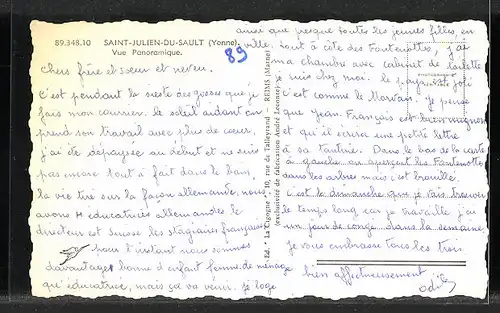 89.348.10 SAINT-JULIEN-DU-SAULT (Yonne)
Vue Panoramique.
89
Chers frère et soeur et neveu.
C'est pendant la sieste des gosses que je
fais mon courrier. Le soleil aidant on
prend son travail avec plus de coeur,
j'ai été dépaysée au début et ne suis
pas encore tout à fait dans le bain.
la vie tire sur la façon allemande, nous
avons 4 éducatrices allemandes le
directeur est suisse les stagiaires françaises
pour l'instant nous sommes
davantage bonne d'enfant femme de ménage
qu'éducatrice, mais ça va venir. je loge
Ed. "La Cigogne", 10, rue de Talleyrand - REIMS (Marne)
(exclusivité de fabrication André Leconte)
ainsi que presque toutes les jeunes filles, en
ville. tout à côté des Fontenottes, j'ai
ma chambre avec cabinet de toilette
je suis chez moi. le pays est joli
c'est comme le Morvan. Je pense
que Jean-François est bien mignon
et qu'il écrira une petite lettre
à sa tantine. Dans le bas de la carte
à gauche on aperçoit les Fontenottes
dans les arbres mais c'est brouillé.
C'est le dimanche que je vais trouver
le temps long car je travaille j'ai
un jour de congé dans la semaine.
je vous embrasse tous les trois
bien affectueusement
Odile